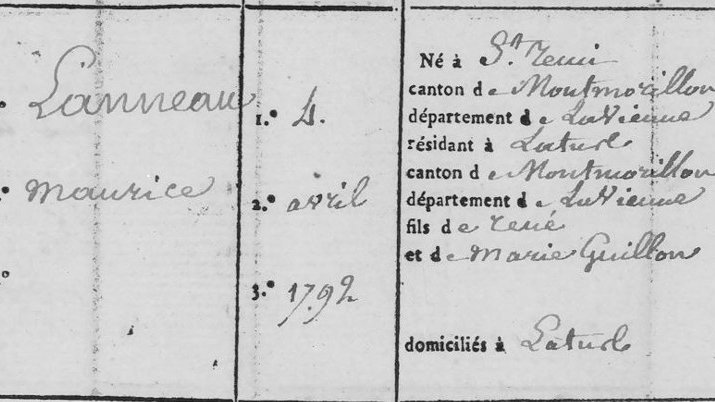 Lanneau
maurice
1.° 4.
2.° avril
3.° 1792
Né à St. remi
canton de Montmorillon
département de La Vienne
résidant à Latus
canton de Montmorillon
département de La Vienne
fils de rené
et de Marie Guillon
domiciliés à Latus